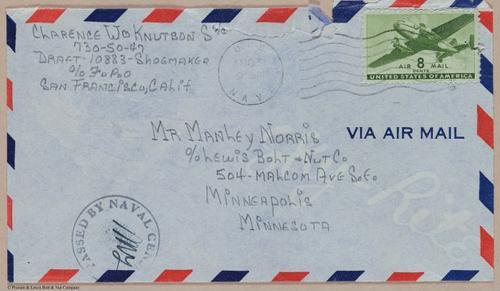 Clarence Wm Knutson S 2/c
730-50-47
Draft-10883-Shoemaker
c/o F.P.O
San Francisco, Calif
U.S.
NAVY
AIR 8 MAIL
CENTS
UNITED STATES OF AMERICA
VIA AIR MAIL
Mr. Manley Norris
c/o Lewis Bolt & Nut Co
504-Malcom Ave S.E.
Minneapolis
Minnesota
PASSED BY NAVAL CEN
Rite
© Possum & Lewis Bolt & Nut Company